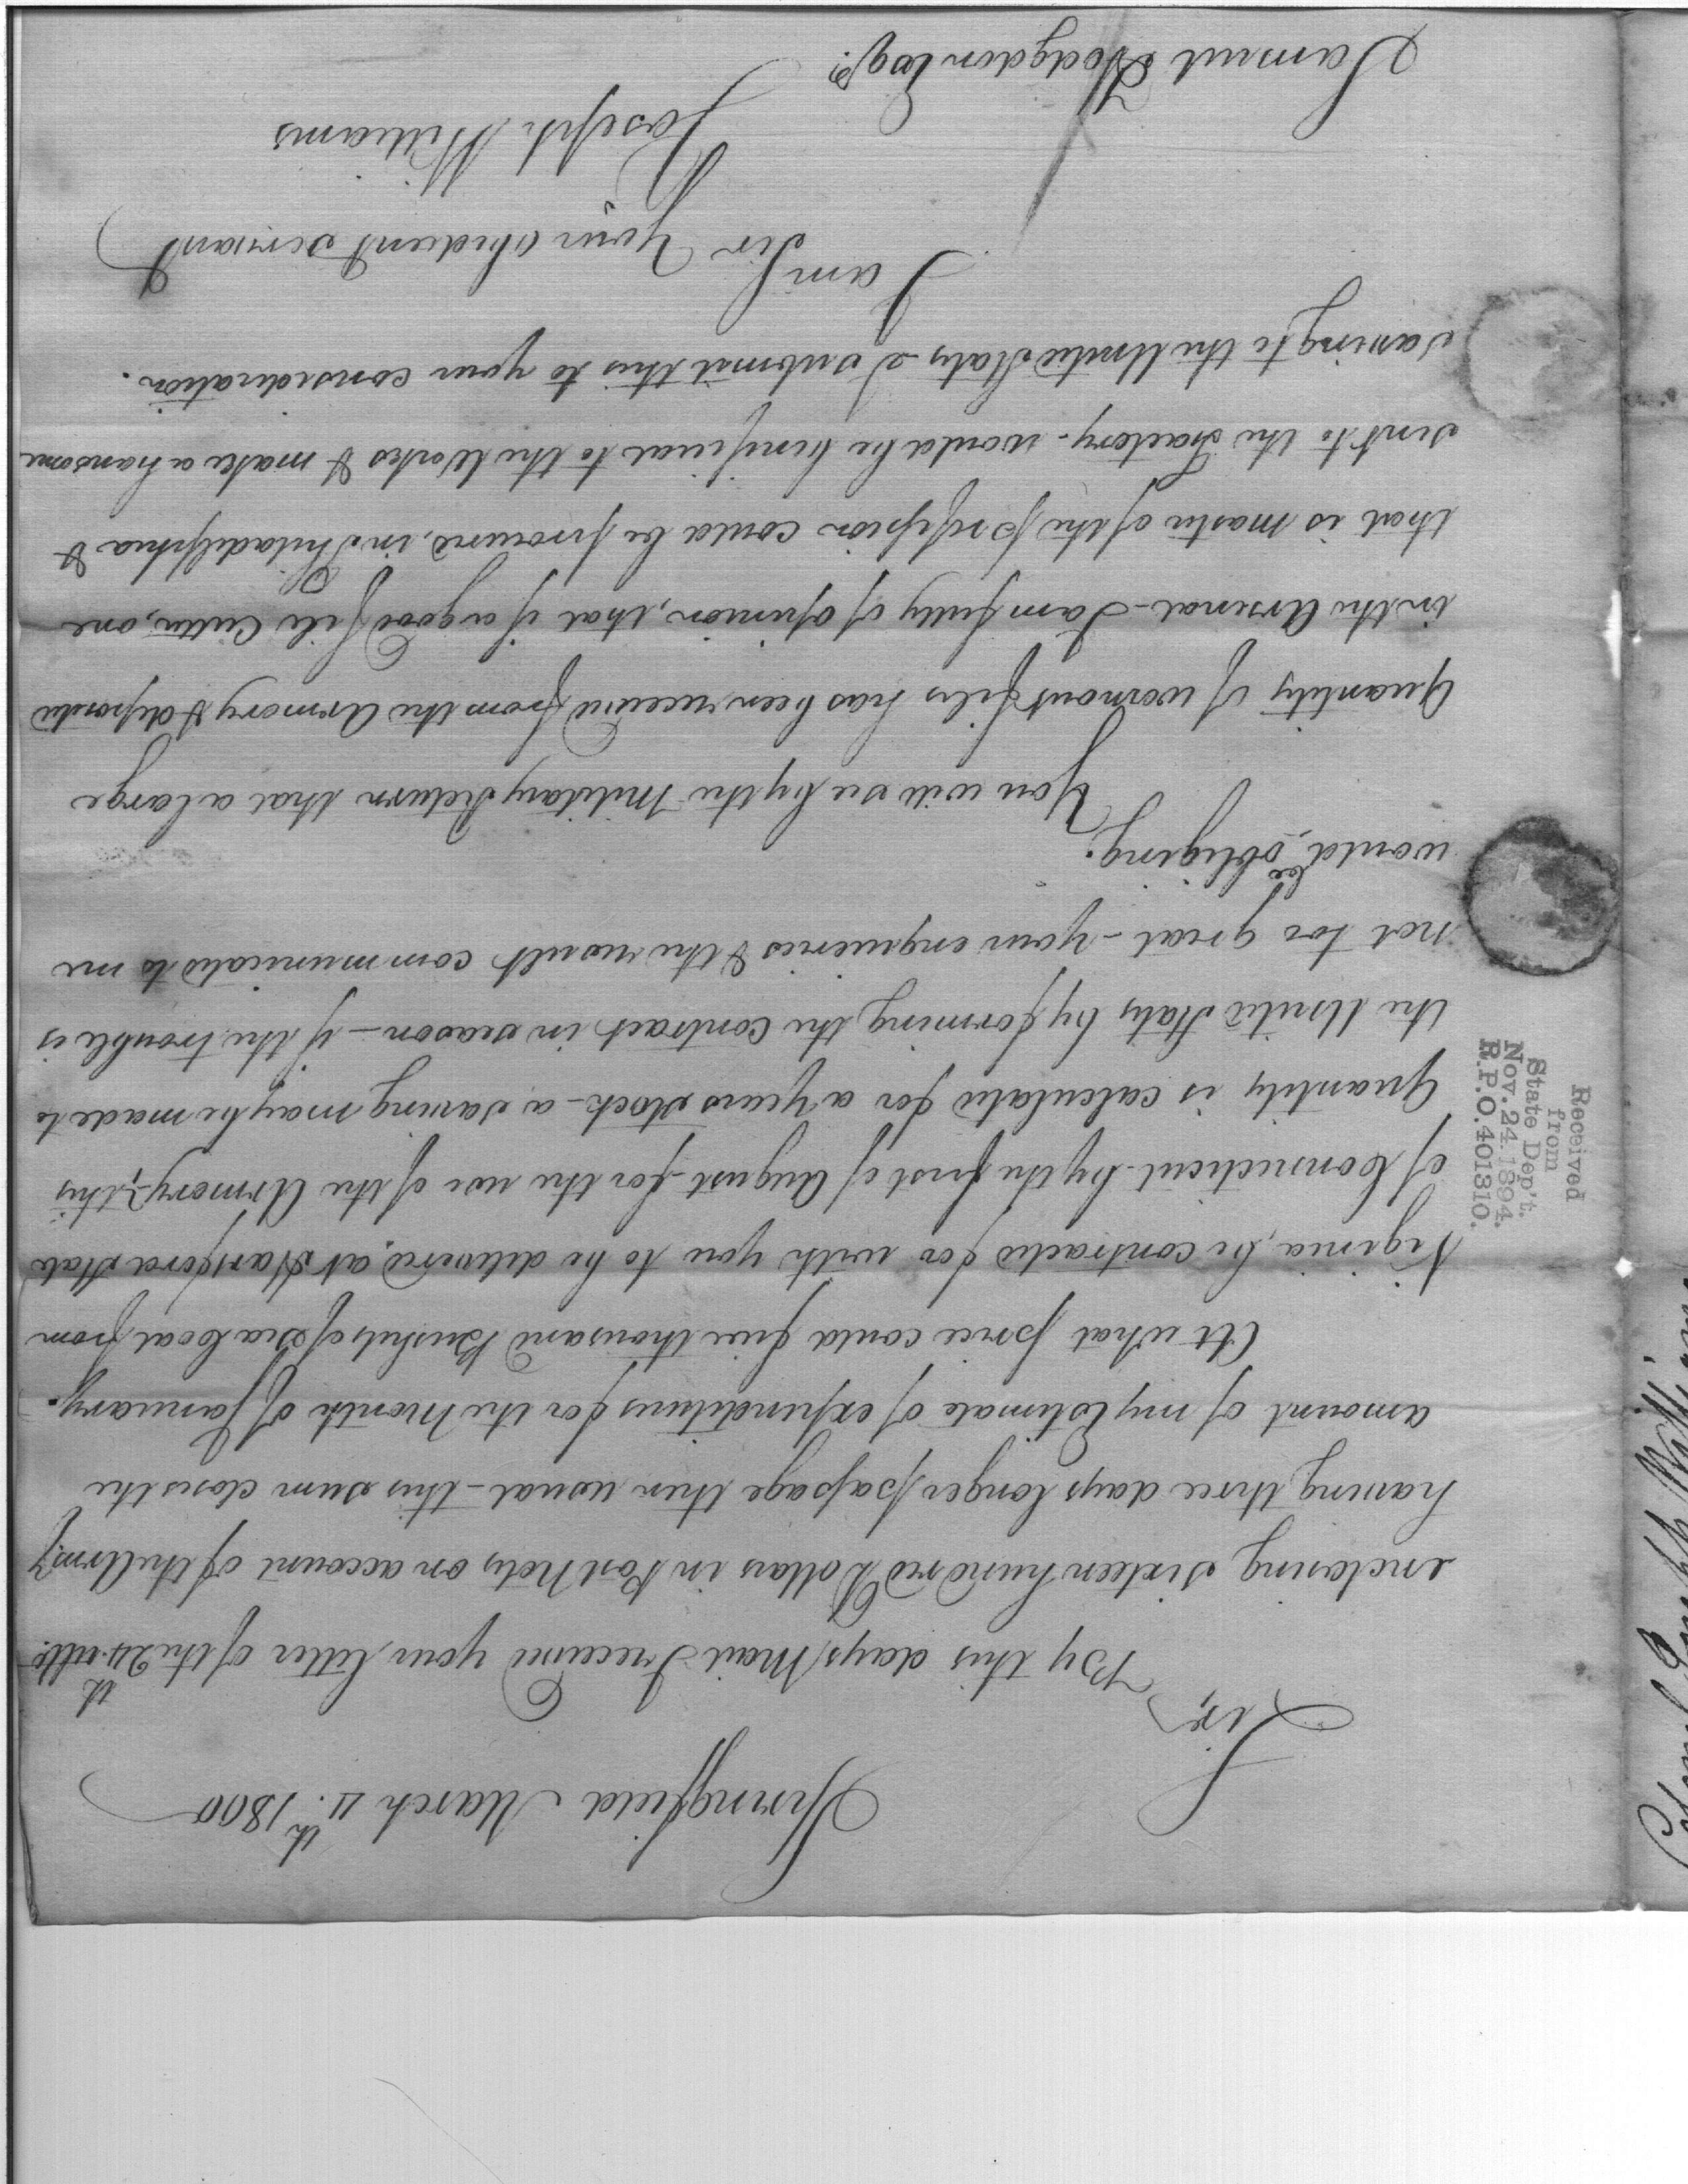 Springfield March 4th. 1800
Sir,
By this days Mail I received your letter of the 24th ulto.
inclosing sixteen hundred Dollars in Post Notes on account of the Army
having three days longer passage then usual - this sum closes the
amount of my Estimate of expenditures for the Month of January.
At what price could five thousand Bushels of Sea Coal from
Viginia, be contracted for with you to be delivered, at Hartford State
of Connecticut by the first of August for the use of the Armory, this
Quantity is calculated for a Years stock - a saving may be made to
the United States by forming the contract in season - if the trouble is
not too great - your enquieries & the result communicated to me
would be obliging.
You will see by the Military Return that a large
Quantity of wornout files has been received from the Armory & deposited
in the Arsenal - I am fully of opinion, that if a good file Cutter, one
that is master of the profession could be procured, in Philadelphia &
sent to the Factory - would be benificial to the Works & make a hansome
saving to the United States I submit this to your consideration.
I am Sir Your Obedient servant
Joseph Williams
Samuel Hodgdon Esqr.
Received
from
State Dep't.
Nov. 24 1894.
R.P.O. 401310.
Joseph Williams